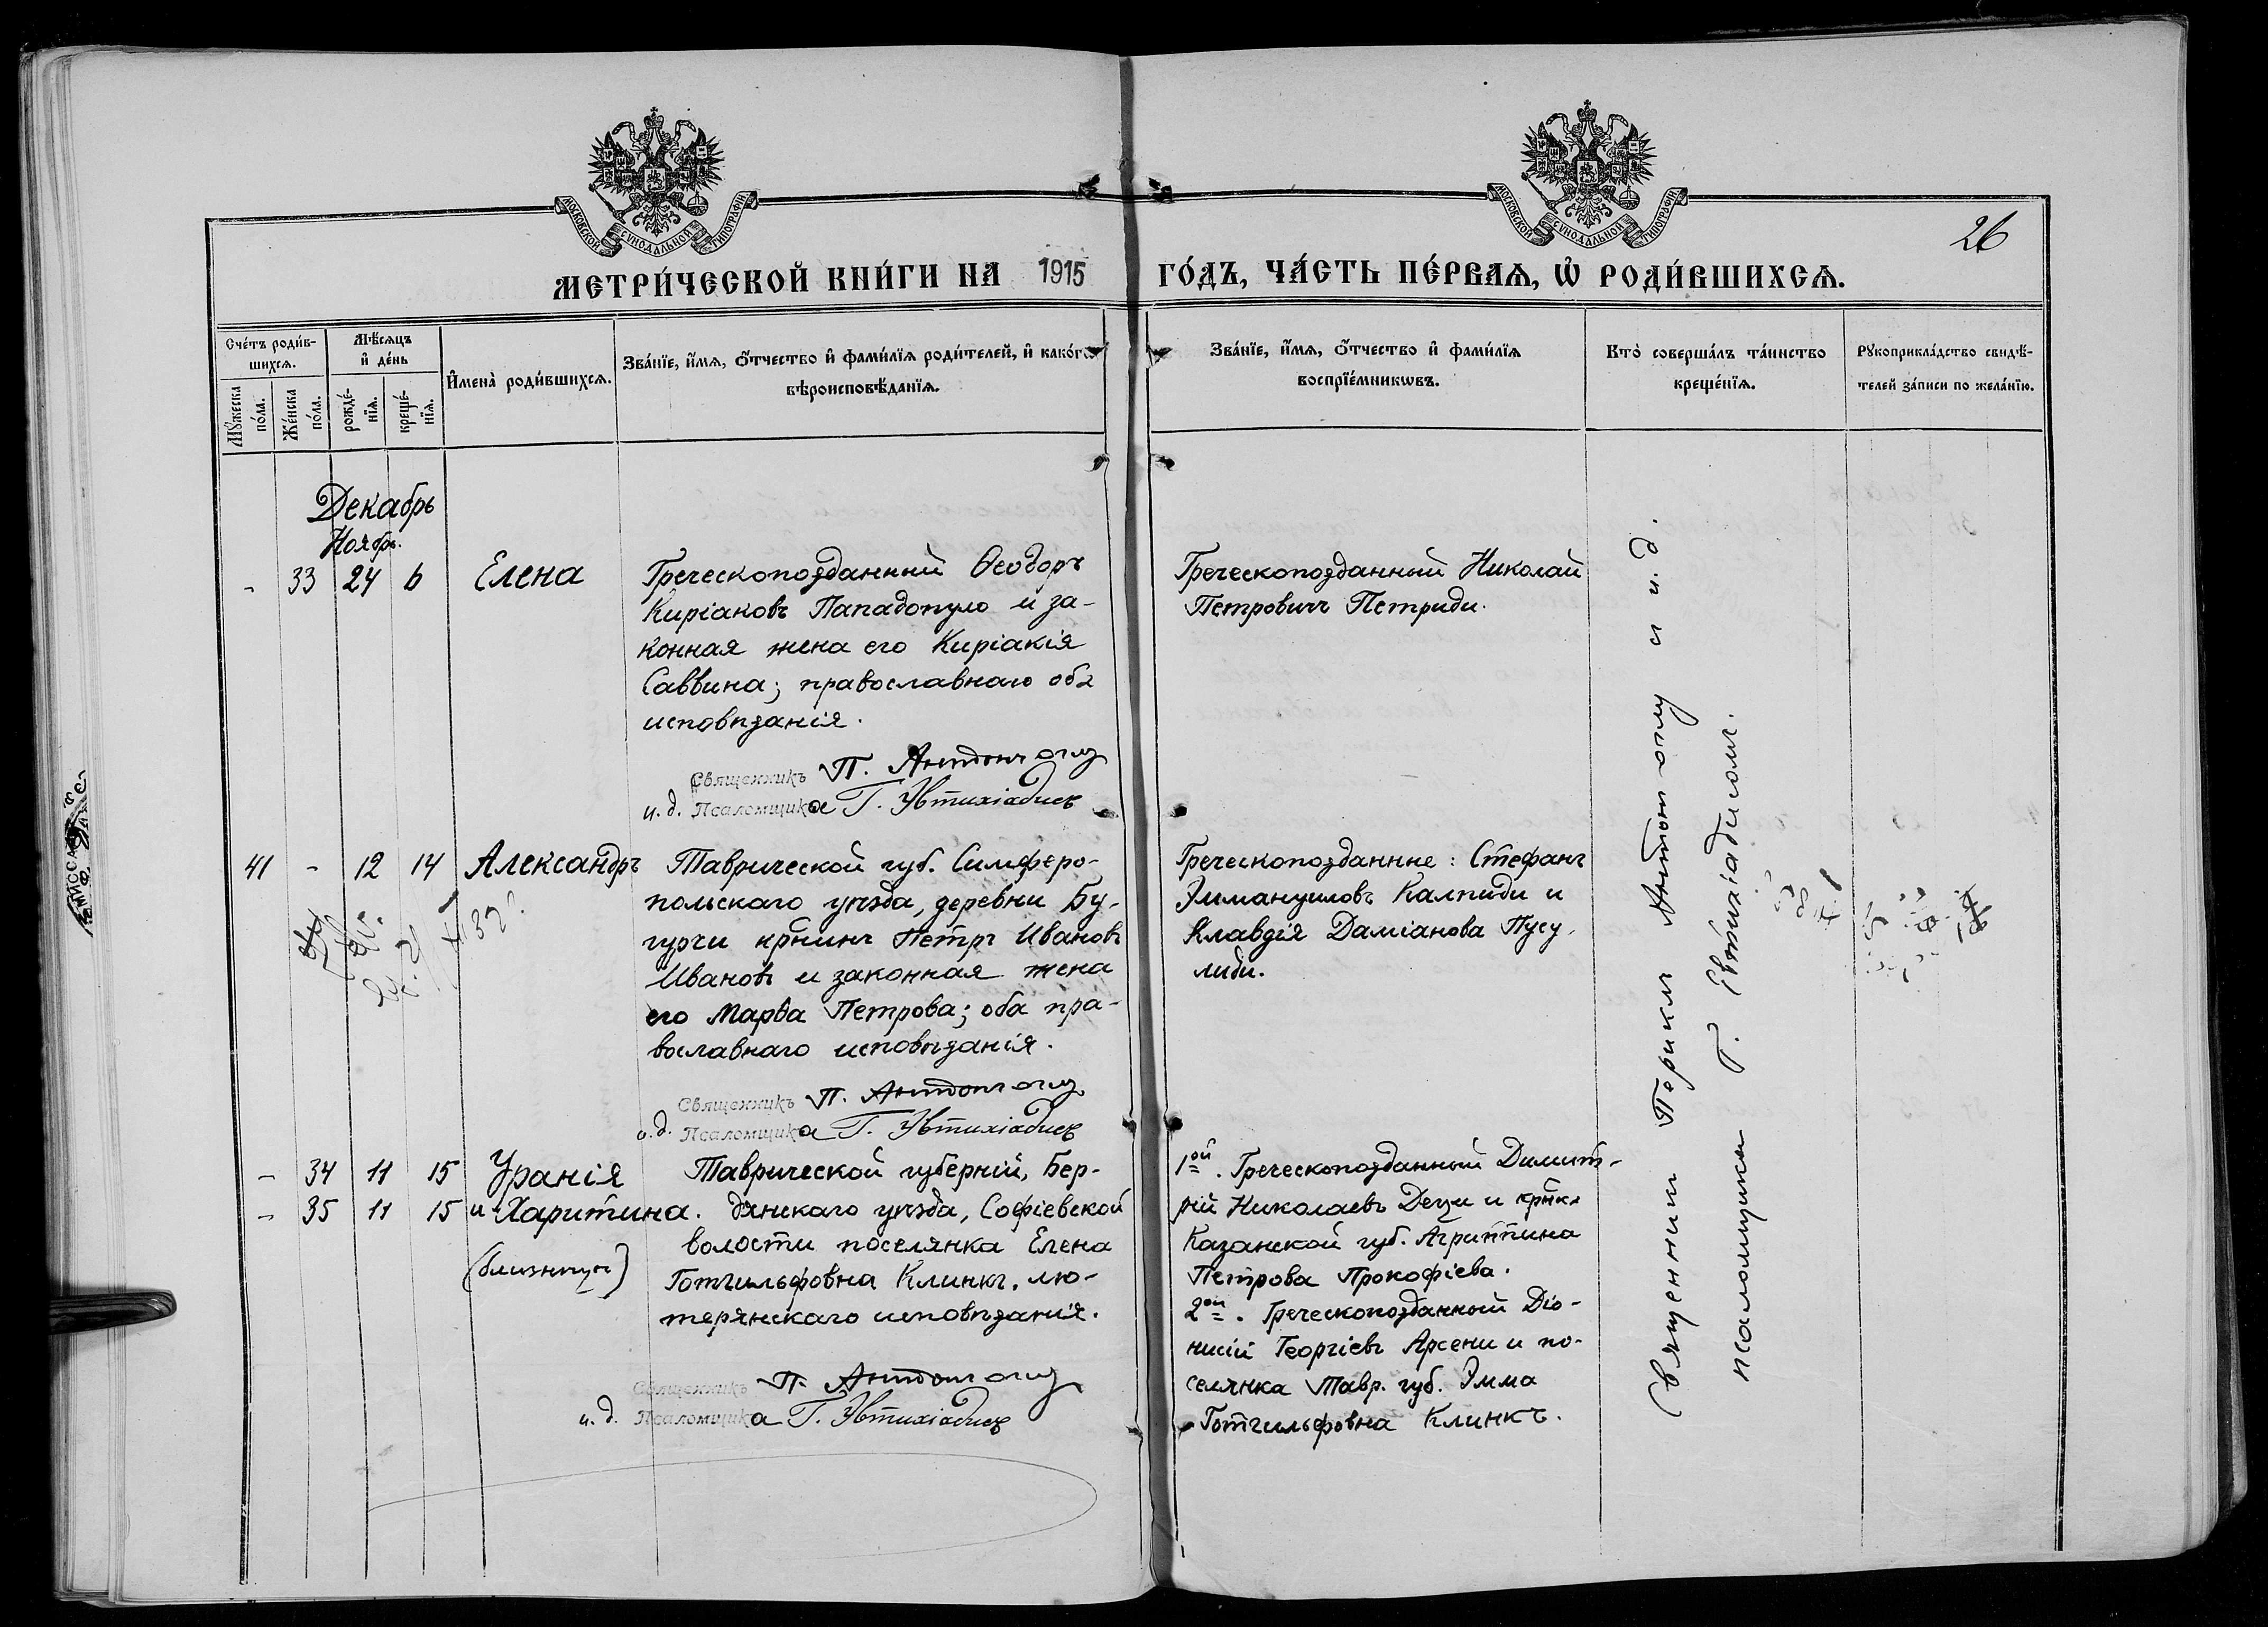 МОСКОВСКОЙ СѴНОДАЛЬНОЙ ТИПОГРАФІИ
МОСКОВСКОЙ СѴНОДАЛЬНОЙ ТИПОГРАФІИ
26
МЕТРИ́ЧЕСКОЙ КНИ́ГИ НА 1915 ГО́ДЪ, ЧА́СТЬ ПЕ́РВАЯ, Ѽ РОДИ́ВШИХСЯ.
Сче́тъ роди́в-
шихся.
Мѣ́сяцъ
и҆ де́нь
Мꙋ́жеска по́ла.
Же́нска по́ла.
рожде́-нїя.
креще́-нїя.
И҆мена̀ роди́вшихся.
Зва́нїе, и҆́мя, ѻ҆́тчество и҆ фами́лїя роди́телей, и҆ како́гѡ
вѣроисповѣ́данїя.
Зва́нїе, и҆́мя, ѻ҆́тчество и҆ фами́лїя
воспрїе́мникѡвъ.
Кто̀ соверша́лъ та́инство
креще́нїя.
Рꙋкоприкла́дство свидѣ́-
телей за́писи по жела́нїю.
Декабрь
Ноябрь.
- 33 24 6 Елена
Греческоподданный Ѳеодоръ
Киріаковъ Пападопуло и за-
конная жена его Киріакія
Саввина; православнаго оба
исповѣданія.
Священникъ П. Антоноглу
и. д. Псаломщика Г. Эвтихіадисъ
Греческоподданный Николай
Петровичъ Петриди.
41 - 12 14 Александръ
Таврической губ. Симферо-
польскаго уѣзда, деревни Бу-
гурчи крнинъ Петръ Ивановъ
Ивановъ и законная жена
его Марѳа Петрова; оба пра-
вославнаго исповѣданія.
Священникъ П. Антоноглу
и. д. Псаломщика Г. Эвтихіадисъ
Греческоподданные: Стефанъ
Эммануиловъ Калпиди и
Клавдія Даміанова Пусу-
лиди.
- 34 11 15 Уранія
- 35 11 15 и Харитина.
(близнецы)
Таврической губерніи, Бер-
дянскаго уѣзда, Софіевской
волости поселянка Елена
Готгильфовна Клинкъ, лю-
терянскаго исповѣданія.
Священникъ П. Антоноглу
и. д. Псаломщика Г. Эвтихіадисъ
1ой. Греческоподданный Димит-
рій Николаевъ Деци и крнка
Казанской губ. Агриппина
Петрова Прокофіева.
2ой. Греческоподданный Діо-
нисій Георгіевъ Арсени и по-
селянка Тавр. губ. Эмма
Готгильфовна Клинкъ.
Священникъ Периклъ Антоноглу и и. д.
псаломщика Г. Евтихіадисомъ.